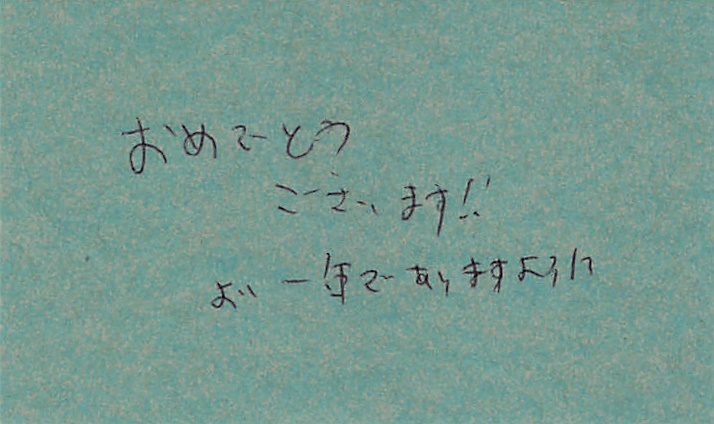 おめでとう
ございます!!
よい一年でありますように